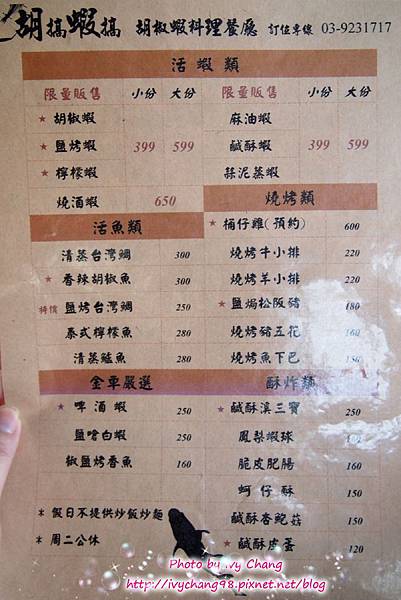 胡搞蝦搞 胡椒蝦料理餐廳 訂位專線 03-9231717
活蝦類
限量販售 小份 大份 限量販售 小份 大份
★ 胡椒蝦 麻油蝦
★ 鹽烤蝦 399 599 鹹酥蝦 399 599
★ 檸檬蝦 蒜泥蒸蝦
燒酒蝦 650
燒烤類
★ 桶仔雞(預約) 600
燒烤牛小排 220
燒烤羊小排 220
★ 鹽焗松阪豬 180
燒烤豬五花 160
燒烤魚下巴
活魚類
清蒸台灣鯛 300
★ 香辣胡椒魚 300
特價 鹽烤台灣鯛 250
泰式檸檬魚 280
清蒸鱸魚 280
金車嚴選
★ 啤酒蝦 250
鹽嗆白蝦 250
椒鹽烤香魚 160
酥炸類
★ 鹹酥溪三寶 250
鳳梨蝦球
脆皮肥腸 160
蚵仔酥 150
鹹酥杏鮑菇 150
★ 鹹酥皮蛋 120
★ 假日不提供炒飯炒麵
★ 周二公休
Photo by Ivy Chang
http://ivychang98.pixnet.net/blog